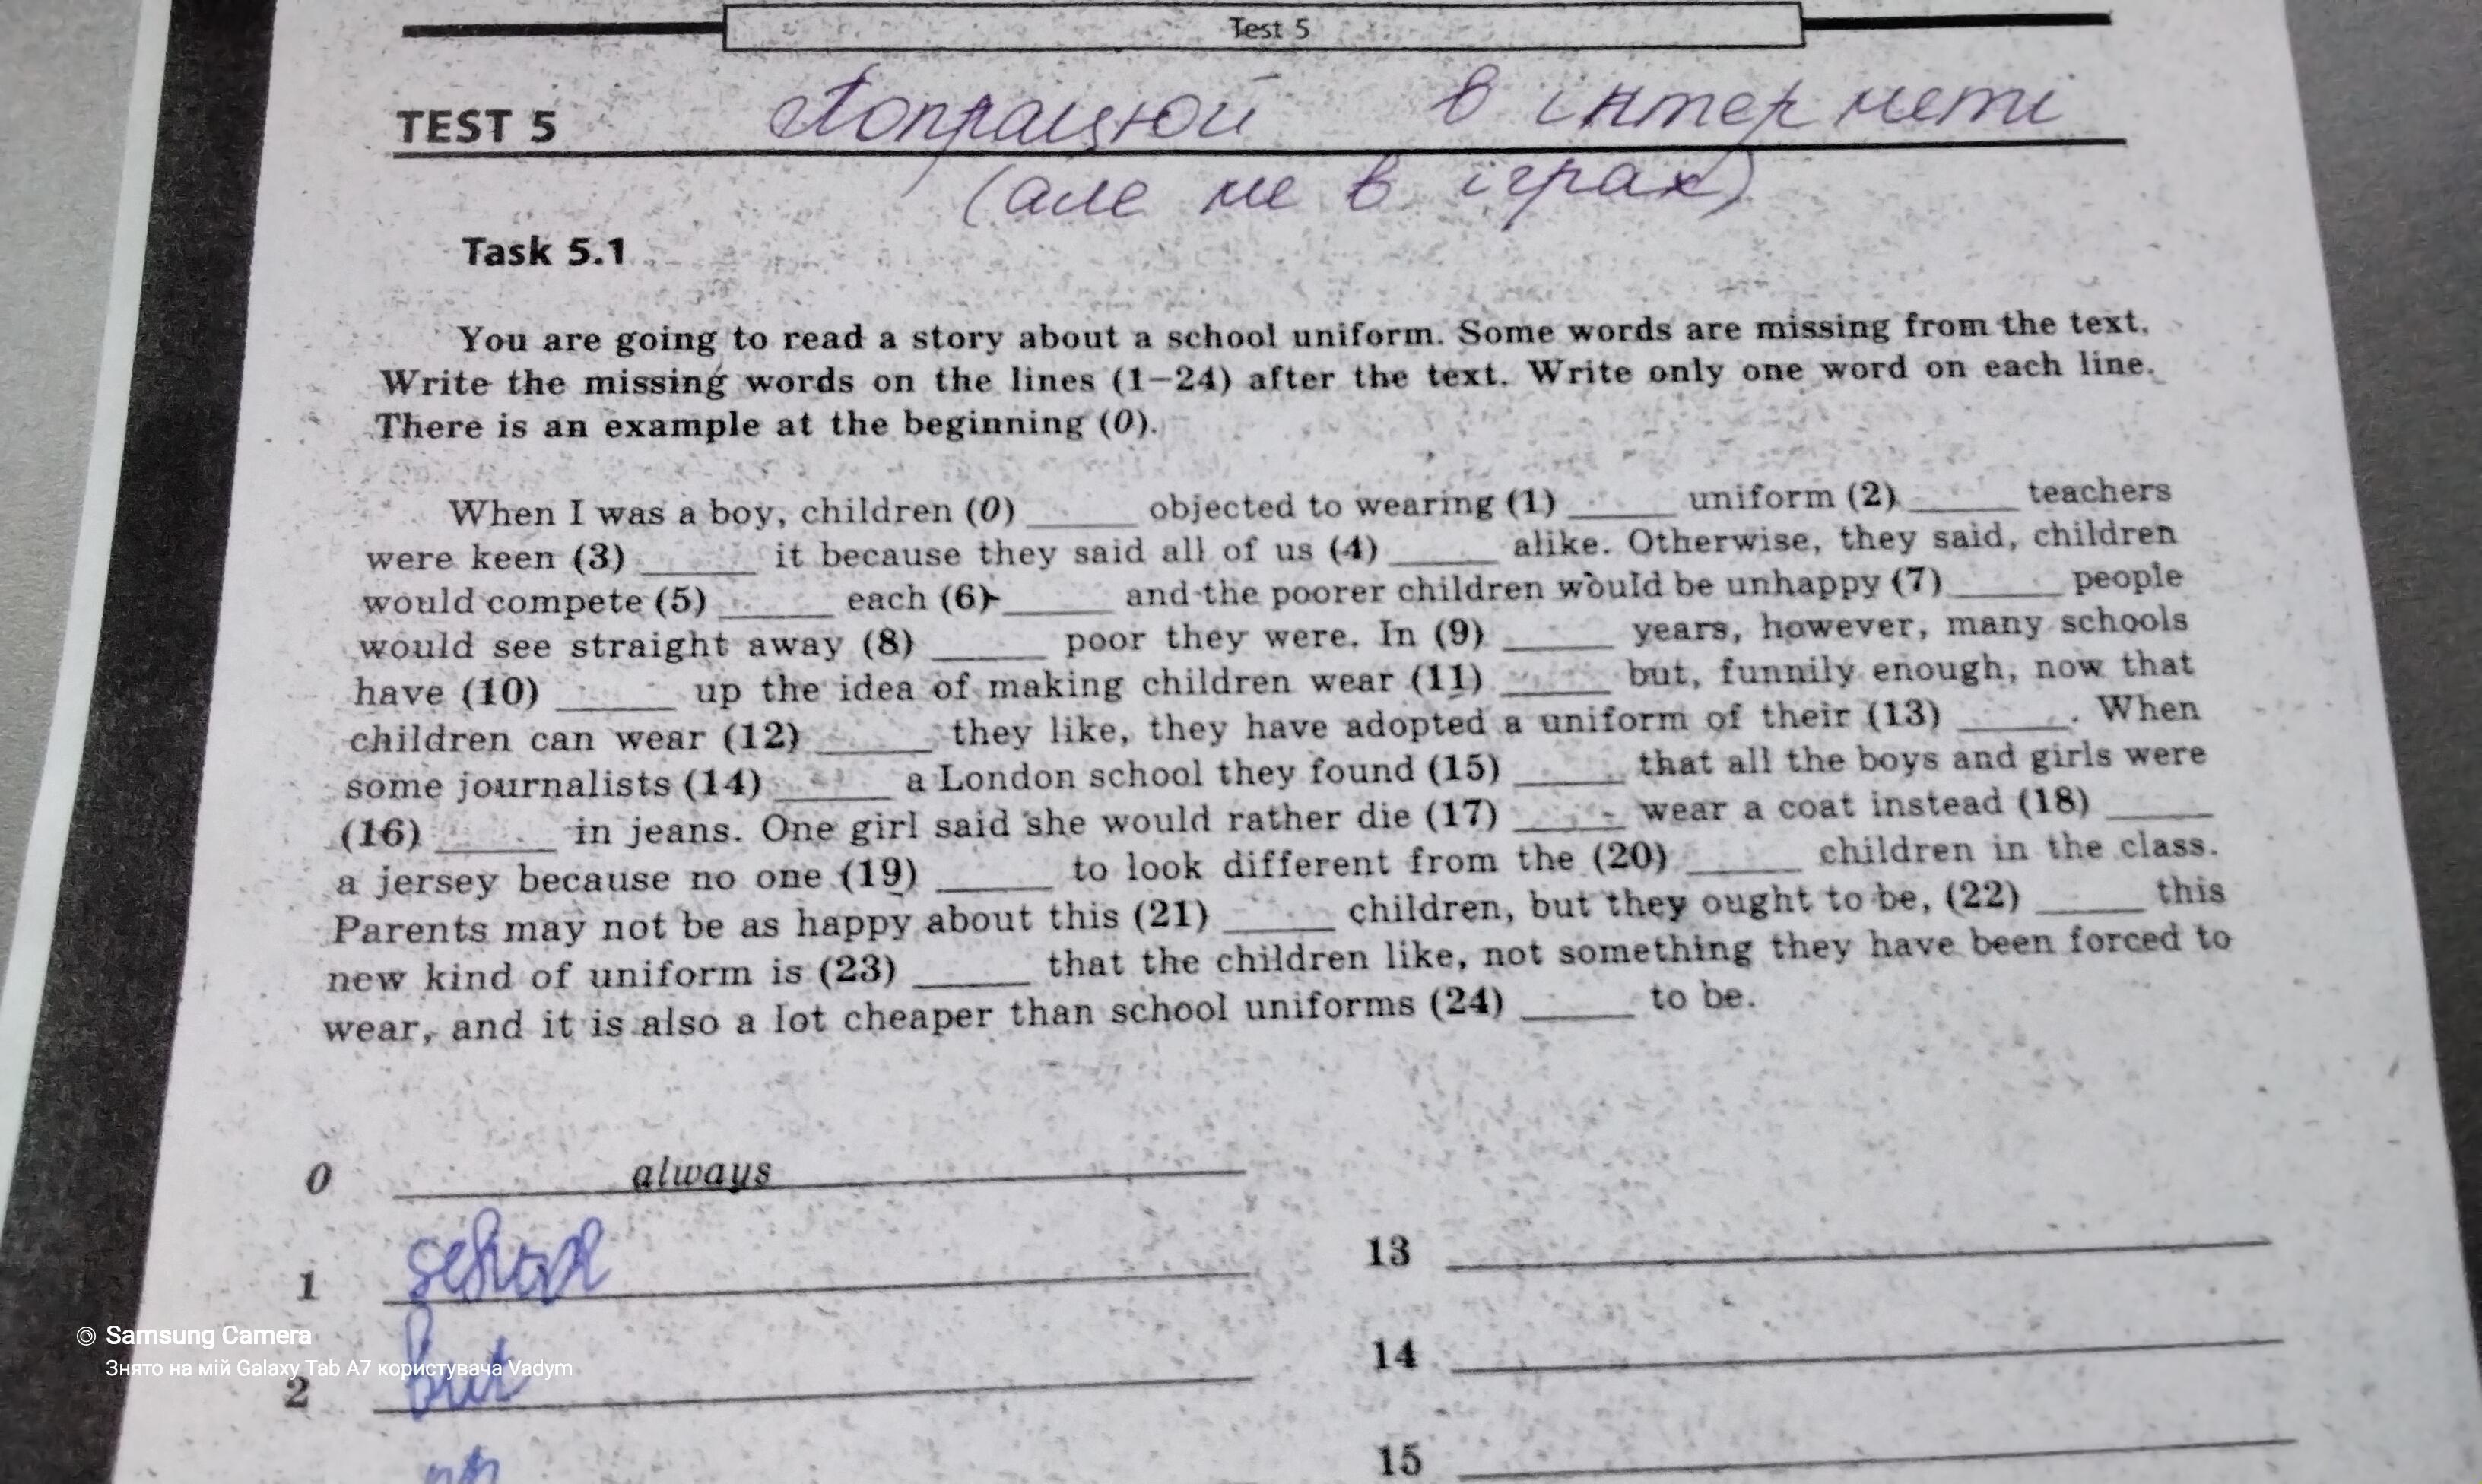 Test 5
TEST 5
Попрацюй в інтернеті
(але не в іграх)
Task 5.1
You are going to read a story about a school uniform. Some words are missing from the text.
Write the missing words on the lines (1–24) after the text. Write only one word on each line.
There is an example at the beginning (0).
When I was a boy, children (0) _____ objected to wearing (1) _____ uniform (2) _____ teachers
were keen (3) _____ it because they said all of us (4) _____ alike. Otherwise, they said, children
would compete (5) _____ each (6) _____ and the poorer children would be unhappy (7) _____ people
would see straight away (8) _____ poor they were. In (9) _____ years, however, many schools
have (10) _____ up the idea of making children wear (11) _____ but, funnily enough, now that
children can wear (12) _____ they like, they have adopted a uniform of their (13) _____. When
some journalists (14) _____ a London school they found (15) _____ that all the boys and girls were
(16) _____ in jeans. One girl said she would rather die (17) _____ wear a coat instead (18) _____
a jersey because no one (19) _____ to look different from the (20) _____ children in the class.
Parents may not be as happy about this (21) _____ children, but they ought to be, (22) _____ this
new kind of uniform is (23) _____ that the children like, not something they have been forced to
wear, and it is also a lot cheaper than school uniforms (24) _____ to be.
0 always
1 school
2 but
on
13
14
15
Samsung Camera
Знято на мій Galaxy Tab A7 користувача Vadym